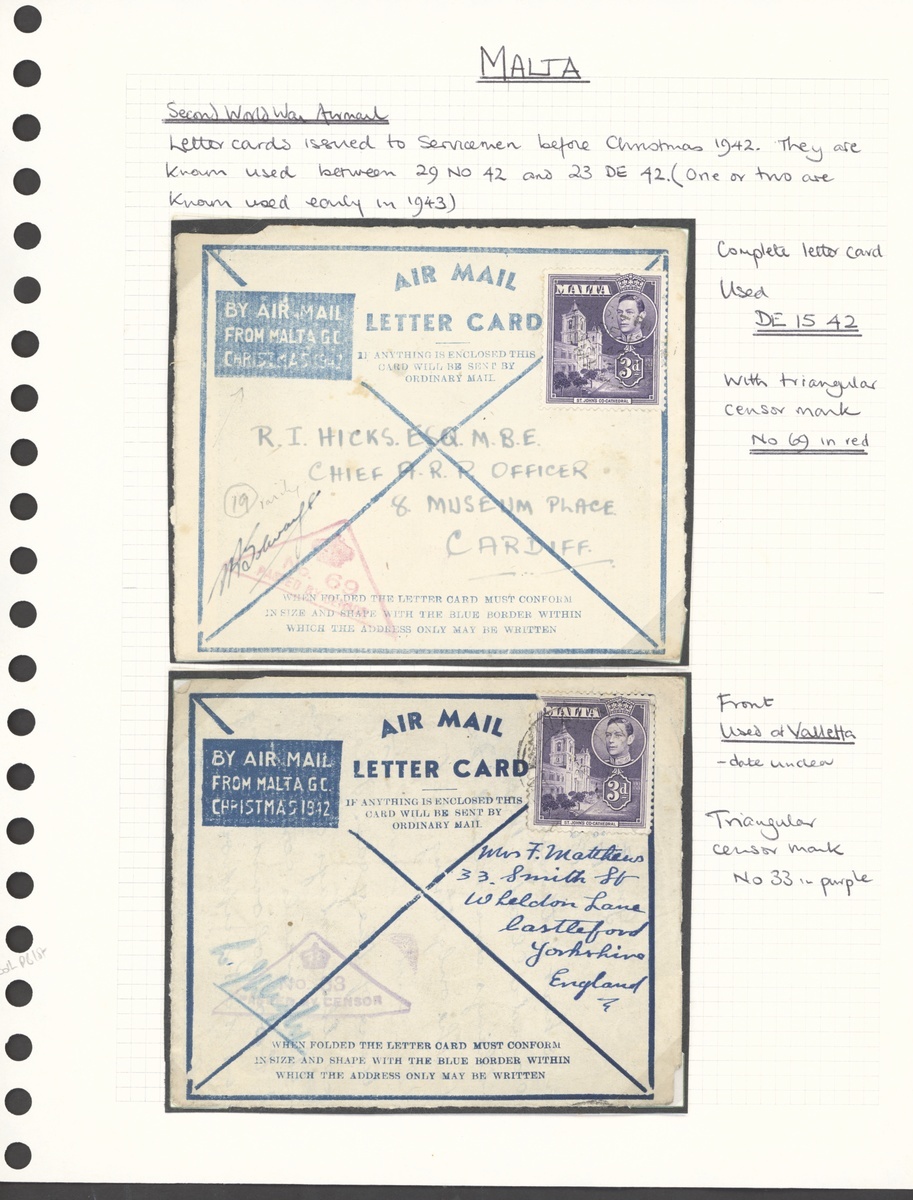 MALTA
Second World War Airmail
Letter cards issued to Servicemen before Christmas 1942. They are
known used between 29 NO 42 and 23 DE 42. (One or two are
known used early in 1943)
Complete letter card
Used
DE 15 42
With triangular
censor mark
No 69 in red
AIR MAIL
LETTER CARD
BY AIR MAIL
FROM MALTA G.C.
CHRISTMAS 1942
IF ANYTHING IS ENCLOSED THIS
CARD WILL BE SENT BY
ORDINARY MAIL.
MALTA
3d
ST. JOHN'S CO-CATHEDRAL
R. I. HICKS. ESQ. M.B.E.
CHIEF A.R.P. OFFICER
8 MUSEUM PLACE
CARDIFF.
19
NO. 69
PASSED BY CENSOR
WHEN FOLDED THE LETTER CARD MUST CONFORM
IN SIZE AND SHAPE WITH THE BLUE BORDER WITHIN
WHICH THE ADDRESS ONLY MAY BE WRITTEN
Front
Used at Valletta
- date unclear
Triangular
censor mark
No 33 in purple
AIR MAIL
LETTER CARD
BY AIR MAIL
FROM MALTA G.C.
CHRISTMAS 1942
IF ANYTHING IS ENCLOSED THIS
CARD WILL BE SENT BY
ORDINARY MAIL.
MALTA
3d
ST. JOHN'S CO-CATHEDRAL
Mrs F. Matthews
33. Smith St
Wheldon Lane
Castleford
Yorkshire
England
NO. 33
PASSED BY CENSOR
WHEN FOLDED THE LETTER CARD MUST CONFORM
IN SIZE AND SHAPE WITH THE BLUE BORDER WITHIN
WHICH THE ADDRESS ONLY MAY BE WRITTEN